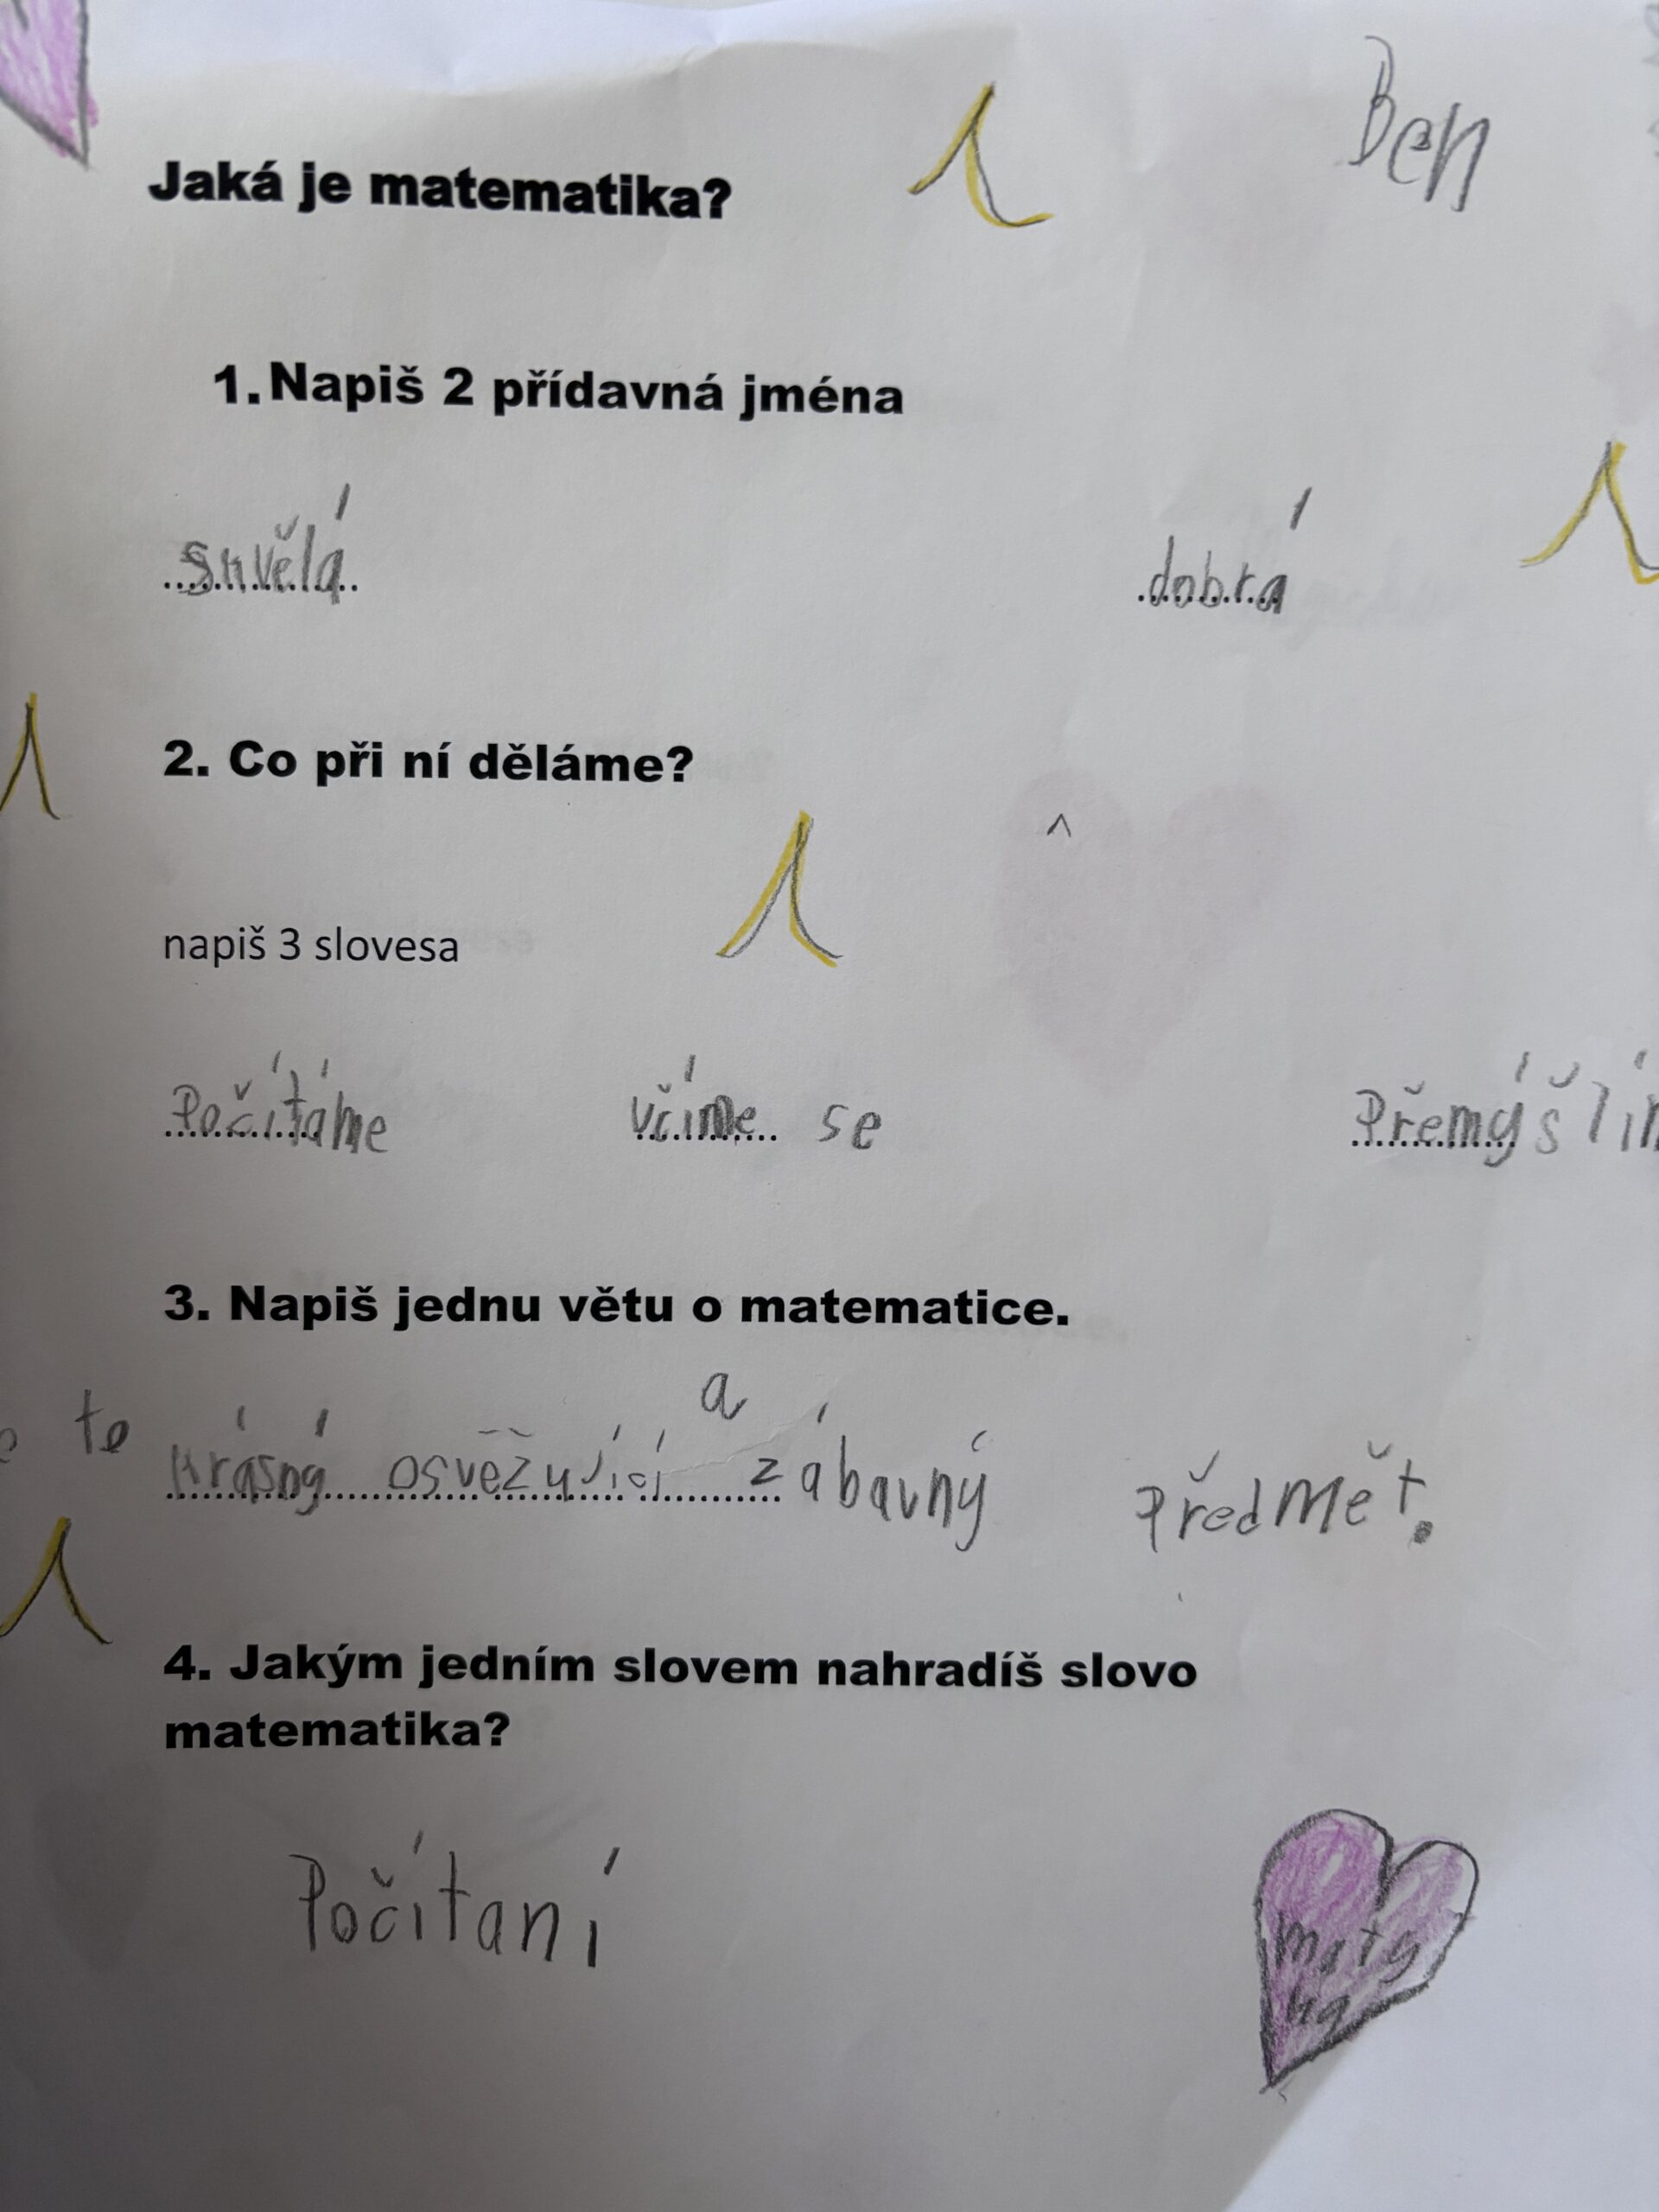 Ben
Jaká je matematika?
1. Napiš 2 přídavná jména
skvělá dobrá
2. Co při ní děláme?
napiš 3 slovesa
Počítáme učíme se Přemýšlím
3. Napiš jednu větu o matematice.
a
te krásný osvěžující zábavný Předmět.
4. Jakým jedním slovem nahradíš slovo
matematika?
Počítaní
maty
ka